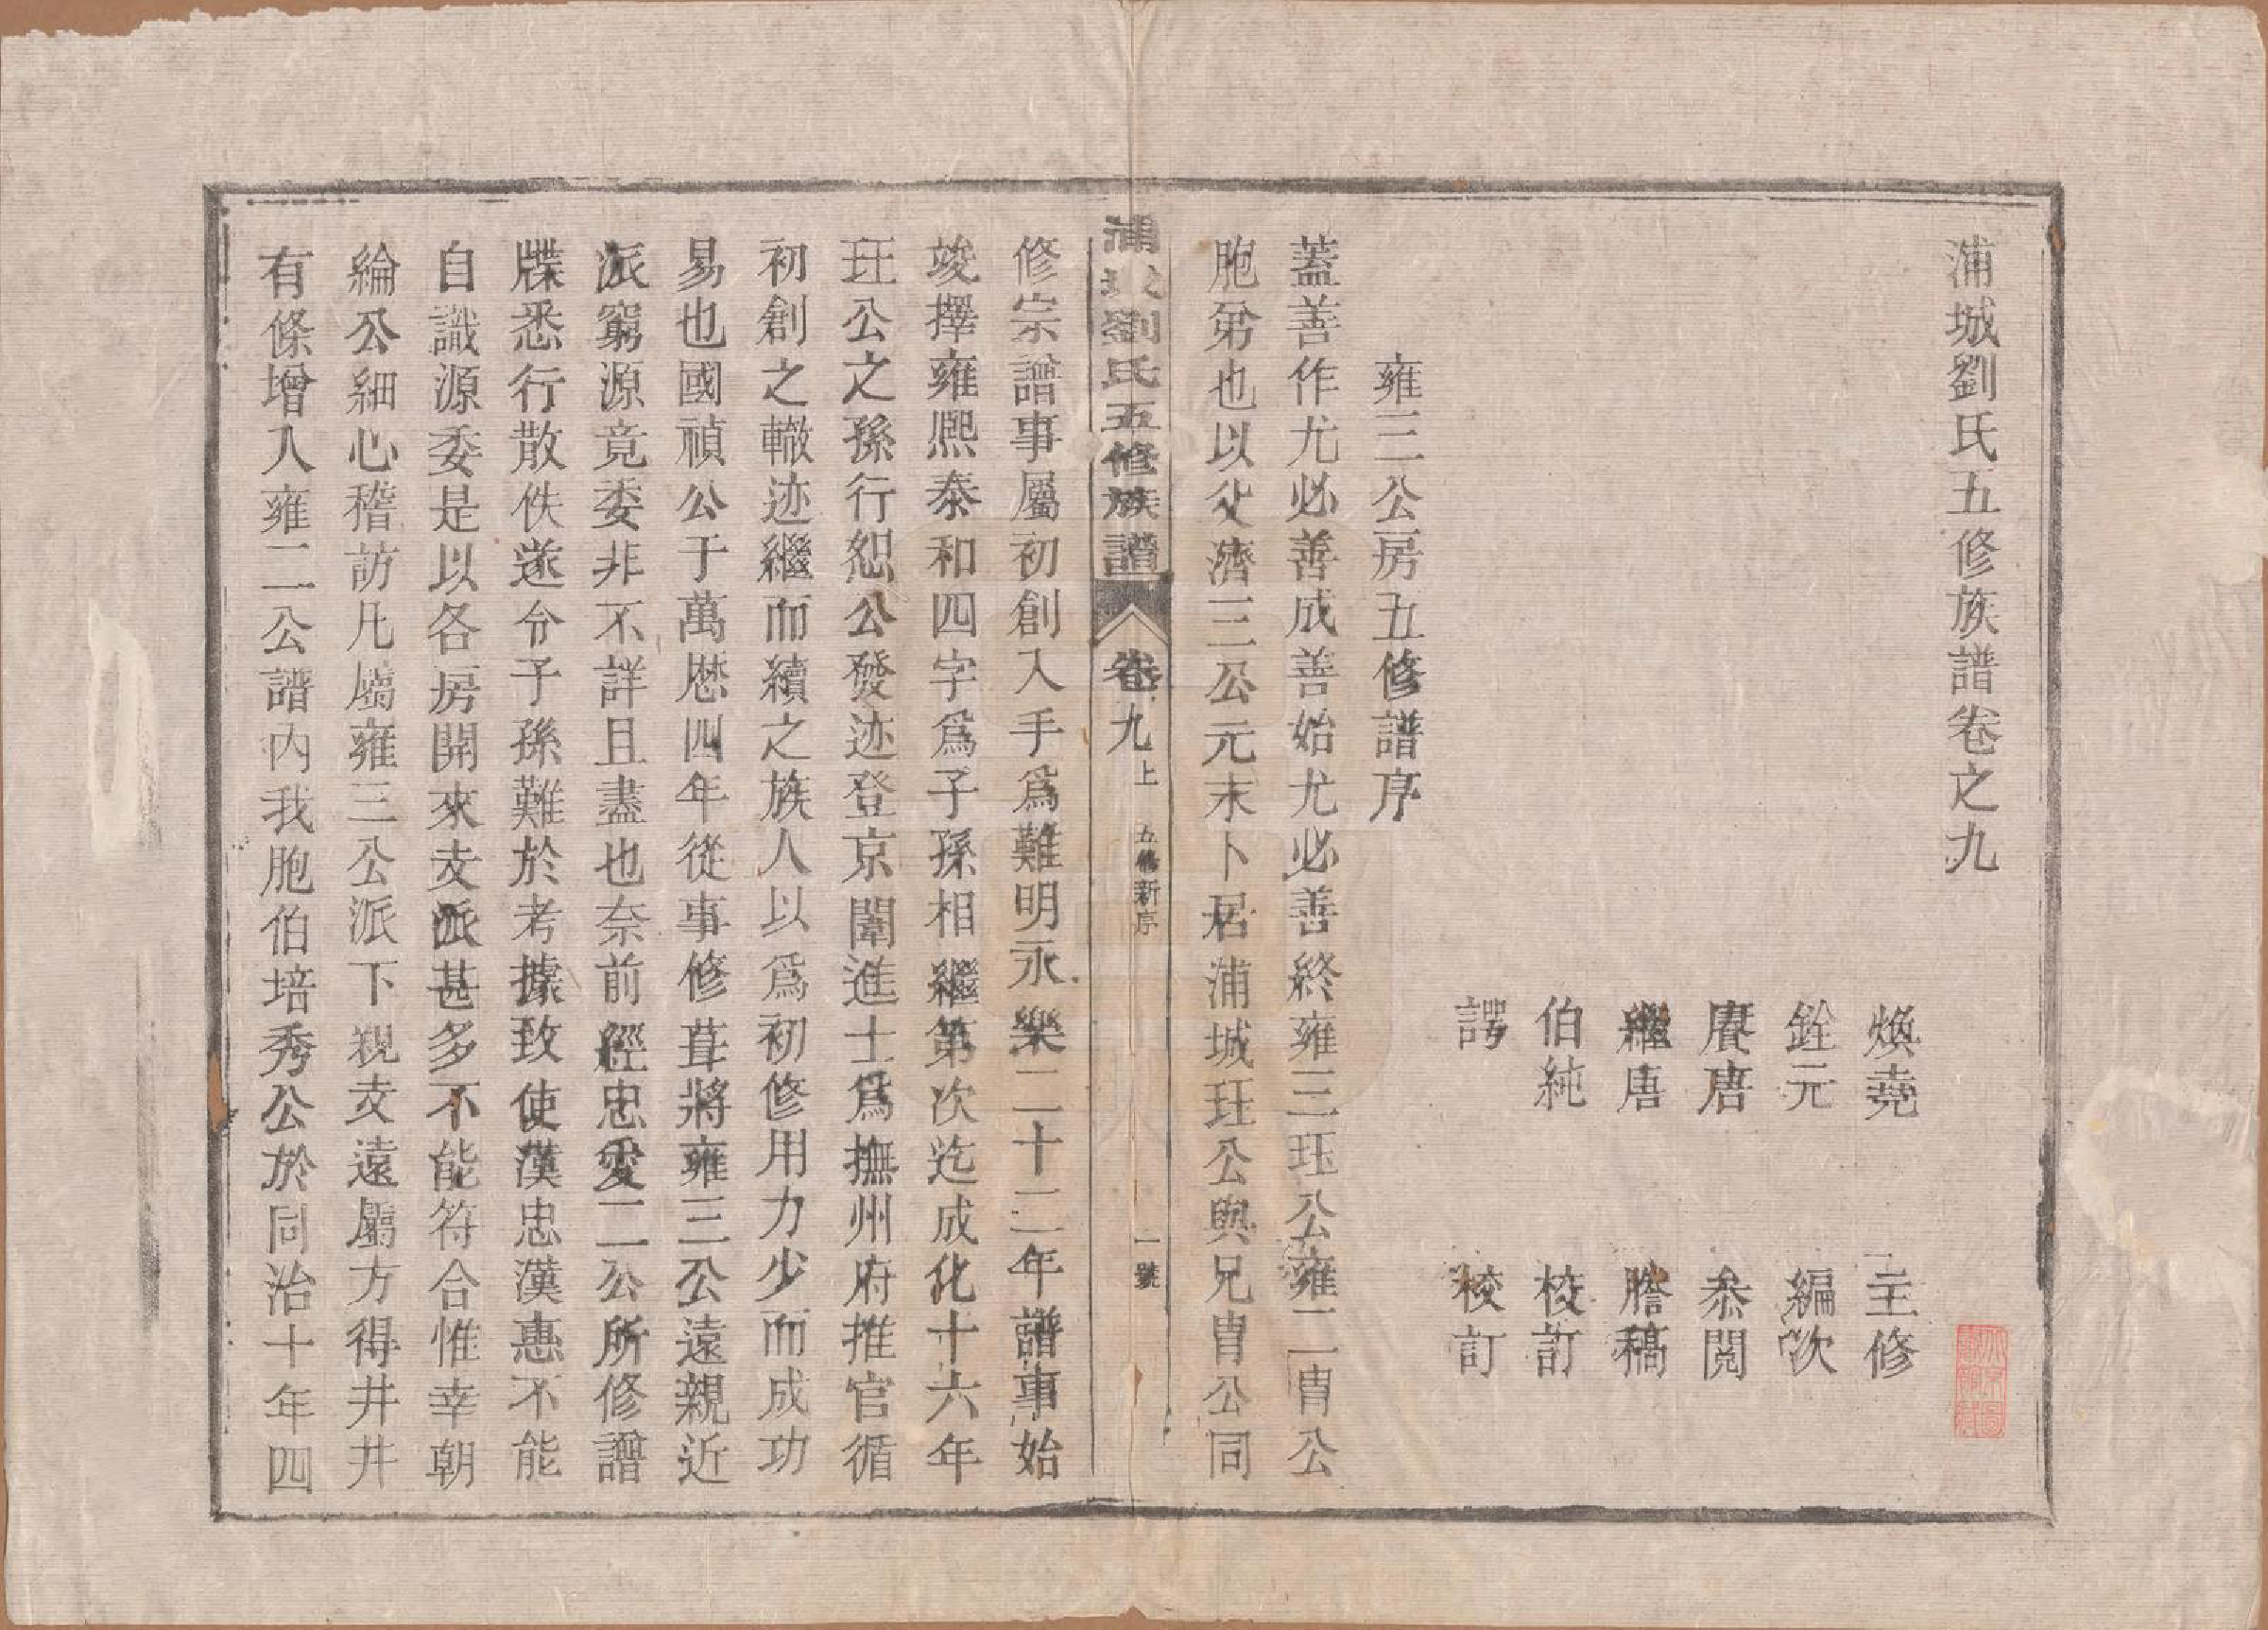 浦城劉氏五修族譜卷之九
煥堯　主修
銓元　編次
賡唐　叅閱
繼唐　謄稿
伯純　校訂
諤　校訂
雍三公房五修譜序
蓋善作尤必善成善始尤必善終雍三珏公雍二冑公
胞弟也以父濟三公元末卜居浦城玨公與兄冑公同
浦城劉氏五修族譜　卷九　上　五修新序　一號
修宗譜事屬初創入手爲難明永樂二十二年譜事始
竣擇雍熙泰和四字爲子孫相繼第次迄成化十六年
玨公之孫行恕公發迹登京闈進士爲撫州府推官循
初創之轍迹繼而續之族人以爲初修用力少而成功
易也國禎公于萬歷四年從事修葺將雍三公遠親近
派窮源竟委非不詳且盡也奈前經忠愛二公所修譜
牒悉行散佚遂令子孫難於考據致使漢忠漢惠不能
自識源委是以各房開來支派甚多不能符合惟幸朝
綸公細心稽訪凡屬雍三公派下親支遠屬方得井井
有條增入雍二公譜內我胞伯培秀公於同治十年四